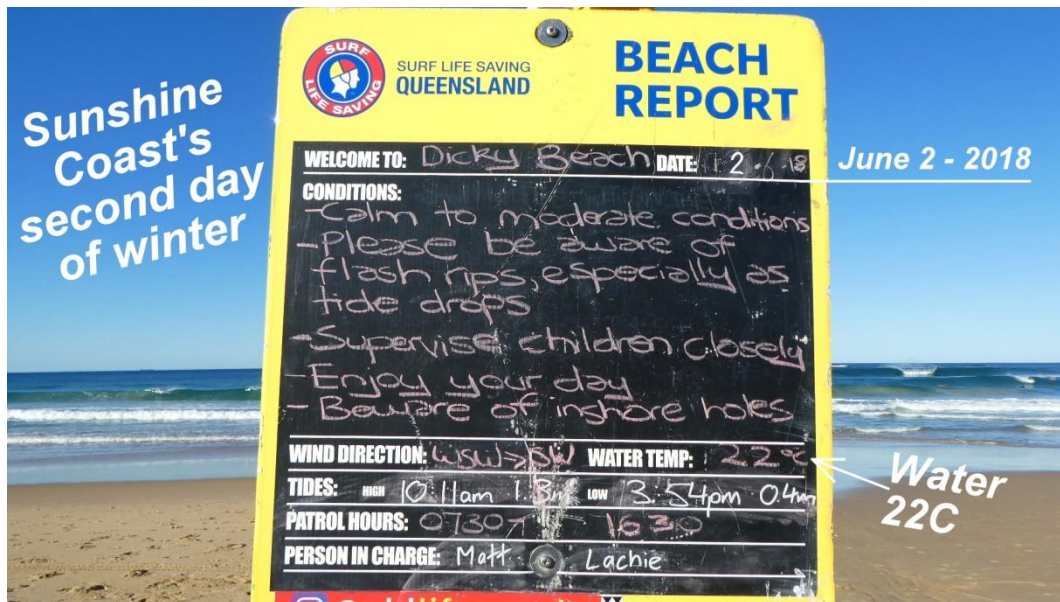 Sunshine
Coast's
second day
of winter
SURF
LIFE SAVING
SURF LIFE SAVING
QUEENSLAND
BEACH
REPORT
WELCOME TO: Dicky Beach DATE: 2.6.18
June 2 - 2018
CONDITIONS:
-Calm to moderate conditions
-Please be aware of
flash rips, especially as
tide drops
-Supervise children closely
-Enjoy your day
-Beware of inshore holes
WIND DIRECTION: WSW>SW WATER TEMP: 22°c
Water
22C
TIDES: HIGH 10.11am 1.3m LOW 3.54pm 0.4m
PATROL HOURS: 0730 - 1630
PERSON IN CHARGE: Matt Lachie